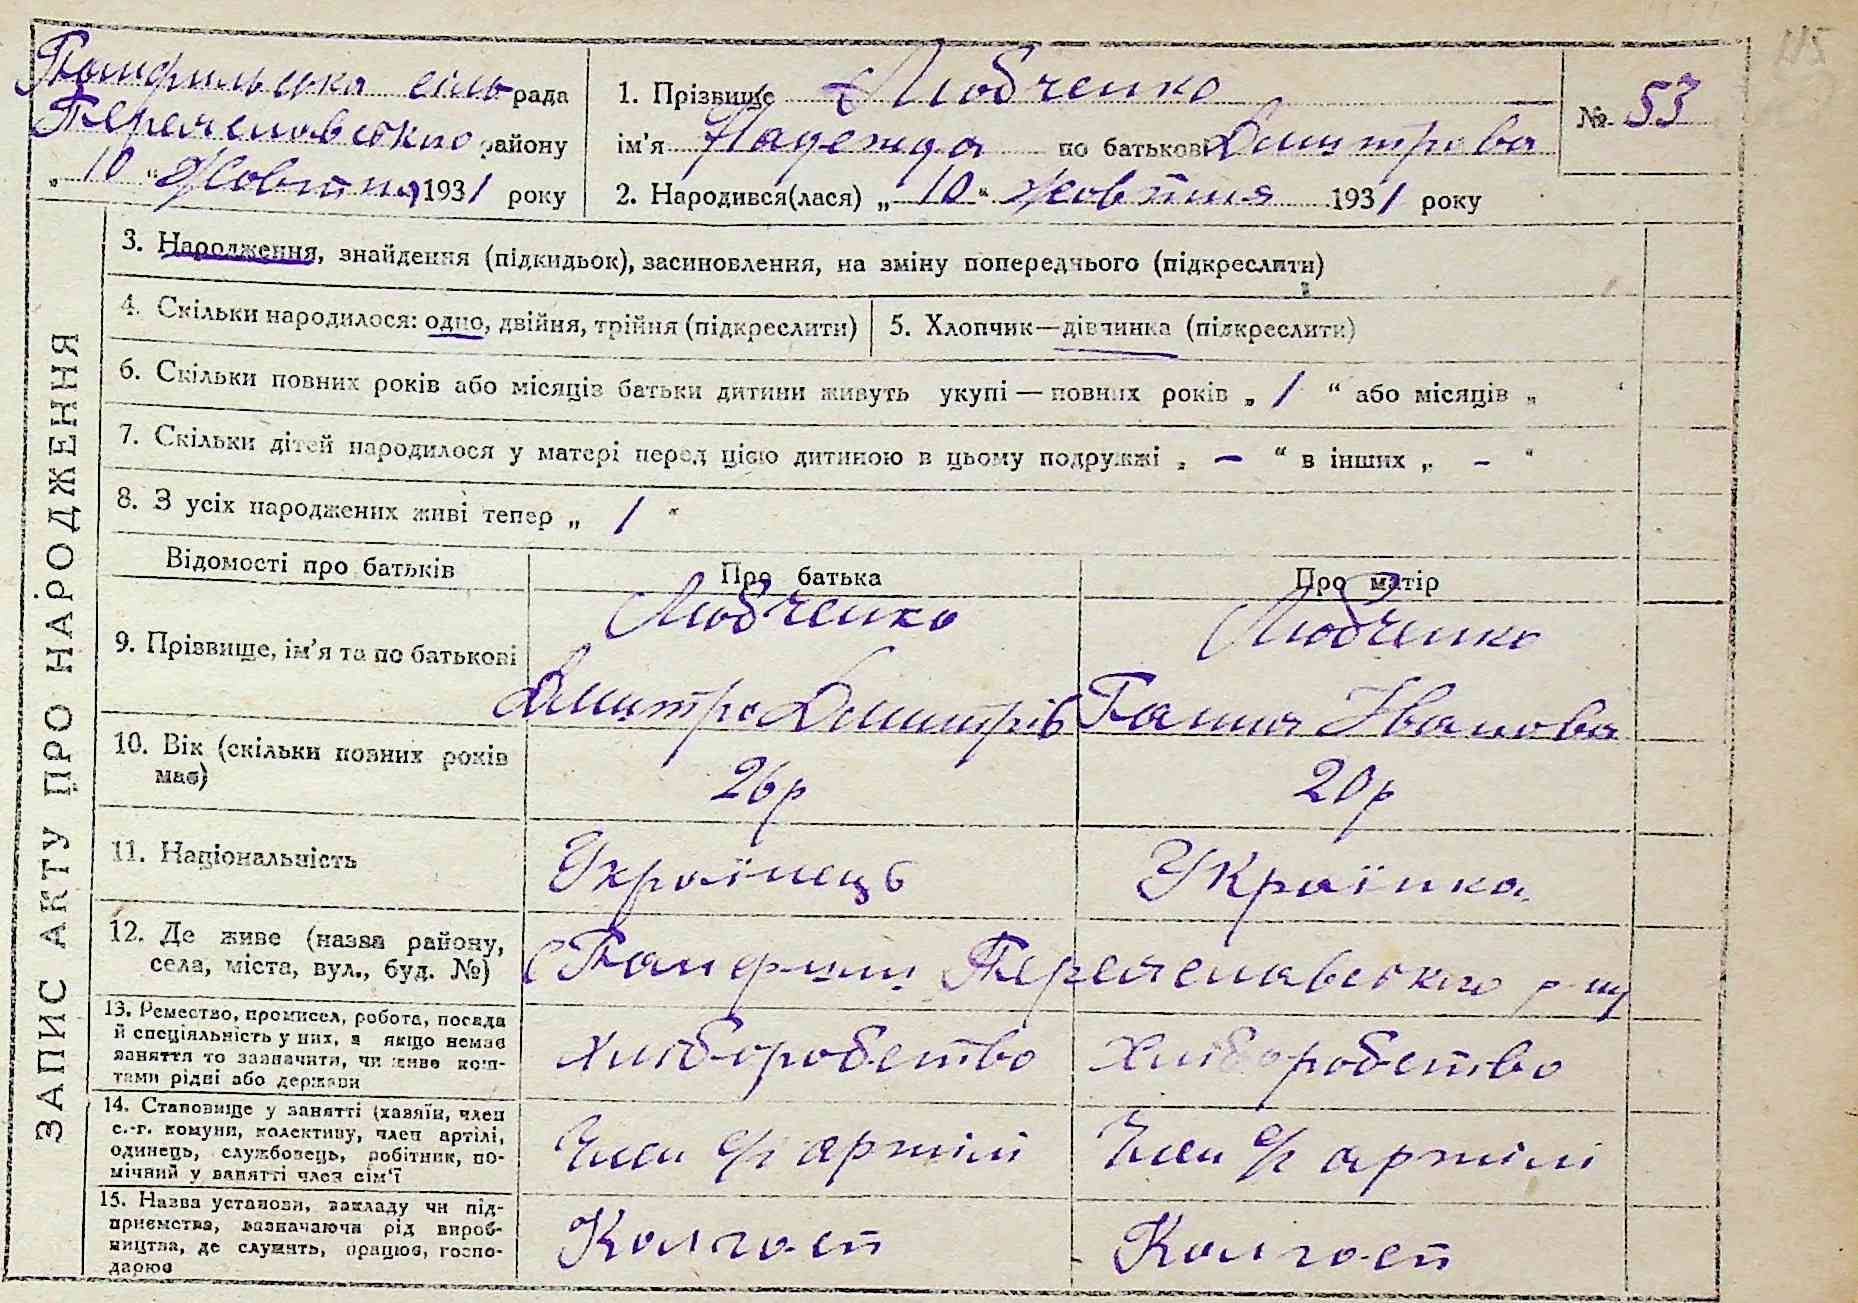 115
Панфильська сіль рада
Переяславського району
„10“ Жовтня 1931 року
1. Прізвище Любченко
ім'я Надежда по батькові Дмитрова
2. Народився(лася) „10“ Жовтня 1931 року
№ 53
ЗАПИС АКТУ ПРО НАРОДЖЕННЯ
3. Народження, знайдення (підкидьок), засиновлення, на зміну попереднього (підкреслити)
4. Скільки народилося: одно, двійня, трійня (підкреслити)
5. Хлопчик—дівчинка (підкреслити)
6. Скільки повних років або місяців батьки дитини живуть укупі — повних років „ 1 “ або місяців „ “
7. Скільки дітей народилося у матері перед цією дитиною в цьому подружжі „ – “ в інших „ – “
8. З усіх народжених живі тепер „ 1 “
Відомості про батьків Про батька Про матір
9. Прізвище, ім'я та по батькові
Любченко
Дмитро Дмитрів
Любченко
Ганна Іванова
10. Вік (скільки повних років
має)
26р
20р
11. Національність
Українець
Українка
12. Де живе (назва району,
села, міста, вул., буд. №)
с Панфили Переяславського р-ну
13. Ремество, промисел, робота, посада
й спеціяльність у них, а якщо немає
заняття то зазначити, чи живе кош-
тами рідні або держави
хліборобство
хліборобство
14. Становище у занятті (хазяїн, член
с.-г. комуни, колективу, член артілі,
одинець, службовець, робітник, по-
мічний у занятті член сім'ї
Член с/г артілі
Член с/г артілі
15. Назва установи, закладу чи під-
приємства, зазначаючи рід вироб-
ництва, де служить, працює, госпо-
дарює
Колгосп
Колгосп